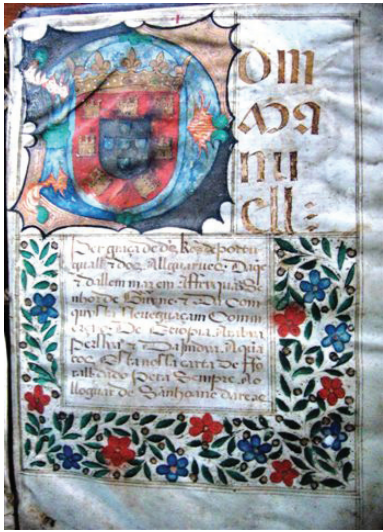 Dm
man
nu
ell:
Per graça de ds Rey de portu
guall & dos Allguarves Daqe
& dallem mar em affrica Se
nhor de Guine & Da Com
quysta & Navegaçam Comm
ercyo De Etiopia Arabia
persia & Da India A qua
tos Esta nossa carta De Fo
rall dado pera Sempre Ao
lloguar de Sanhoane darege